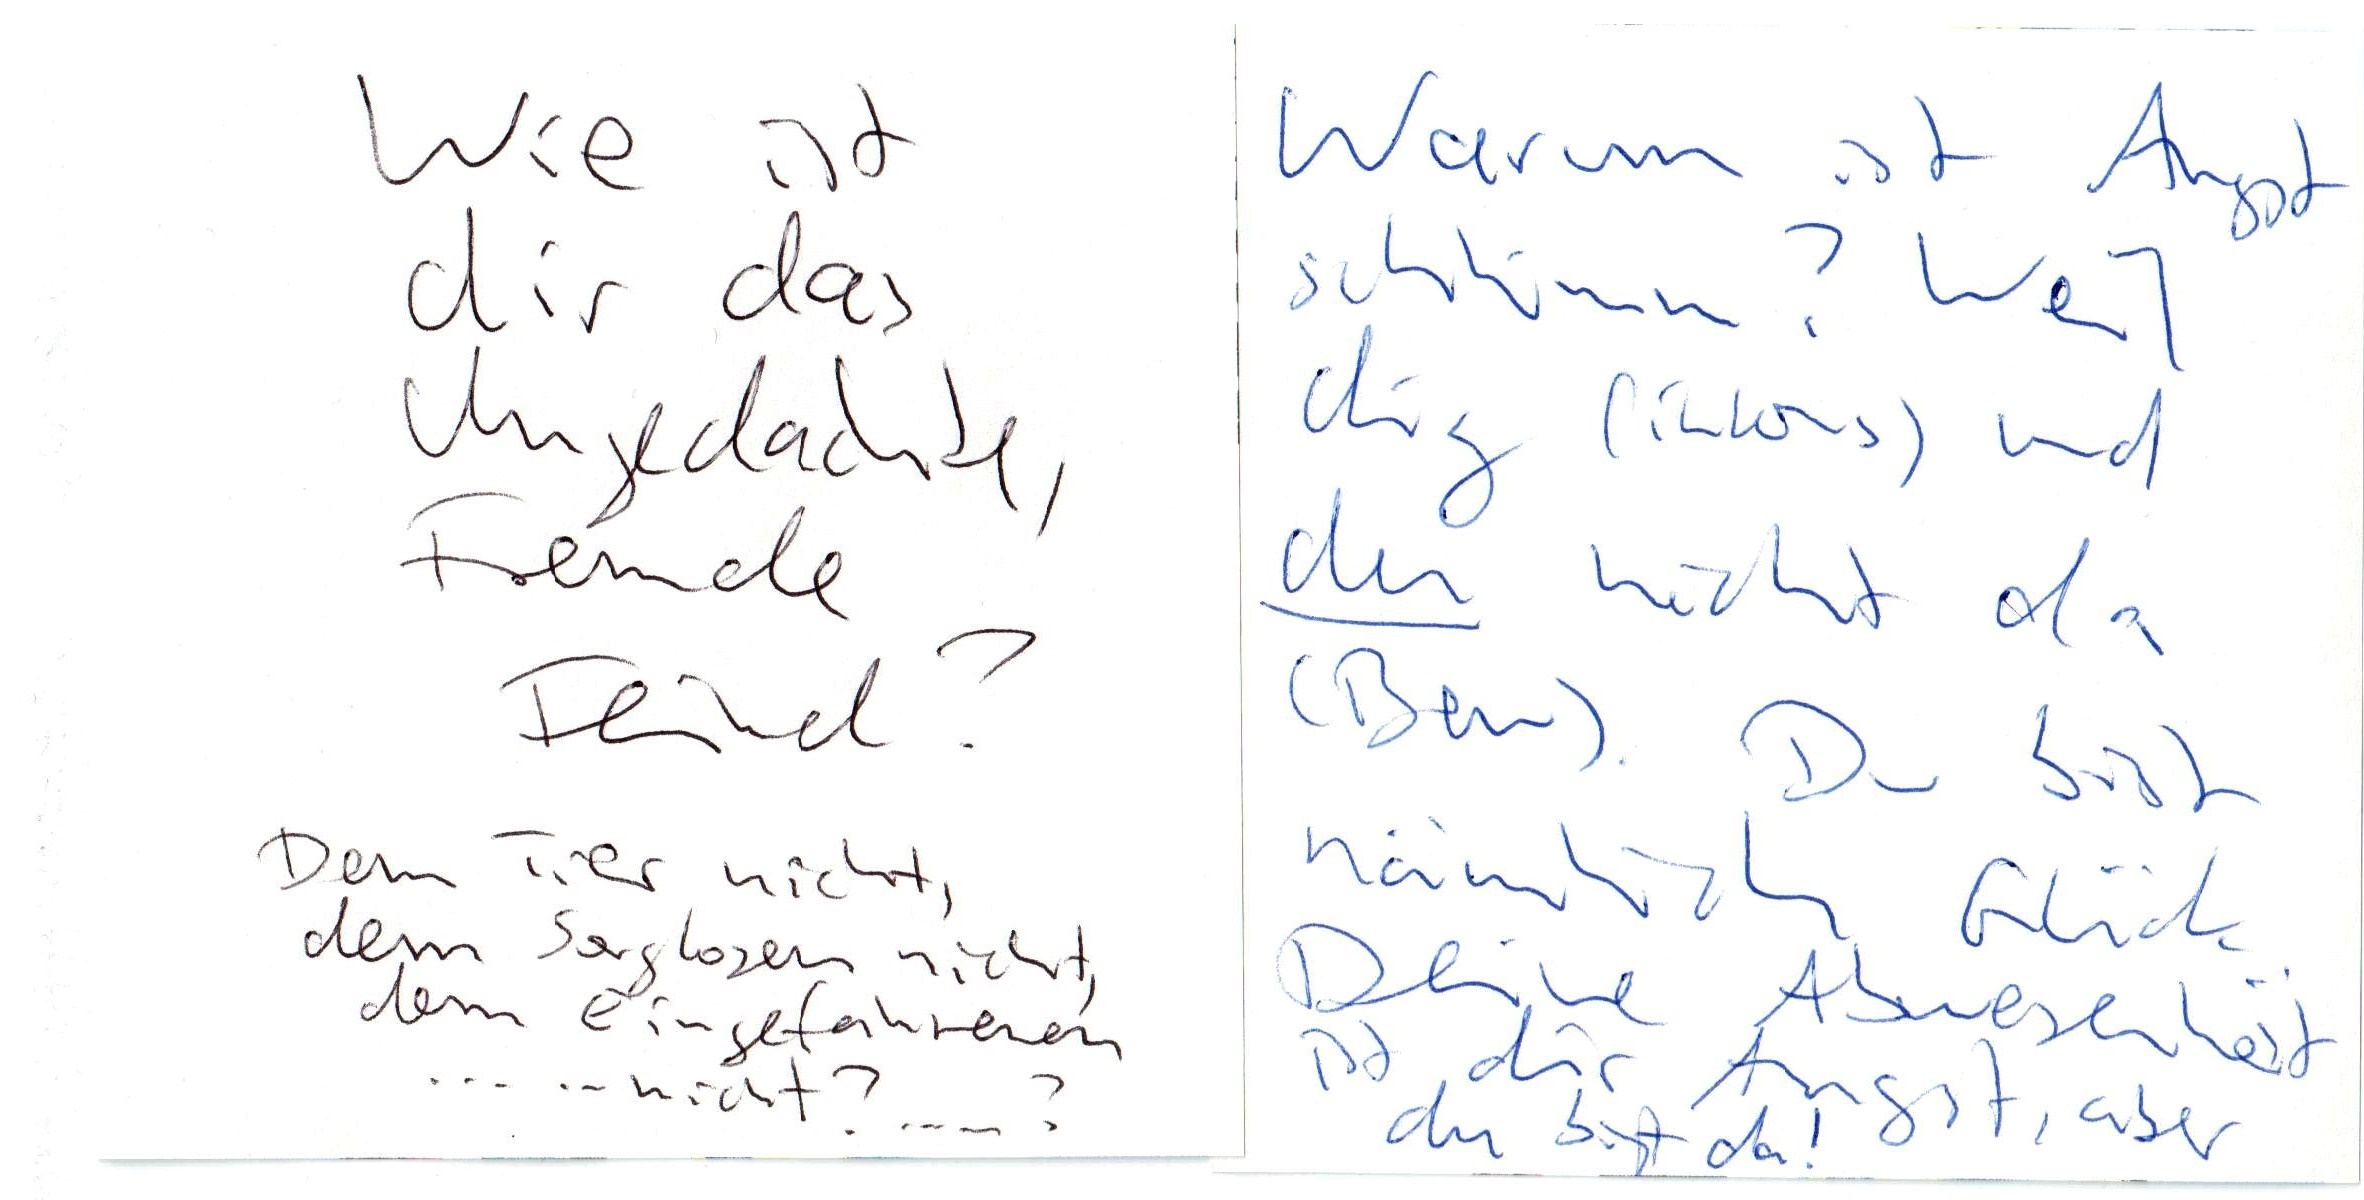 Wie ist
dir das
Ungedachte,
Fremde
Feind?
Dem Tier nicht,
dem Sorglosen nicht,
dem Eingefahrenen
... ... nicht? ....?
Warum ist Angst
schlimm? Weil
und
du nicht da
(Bem). Du bist
nämlich Glück
Deine Abwesenheit
ist dir Angst, aber
du bist da!